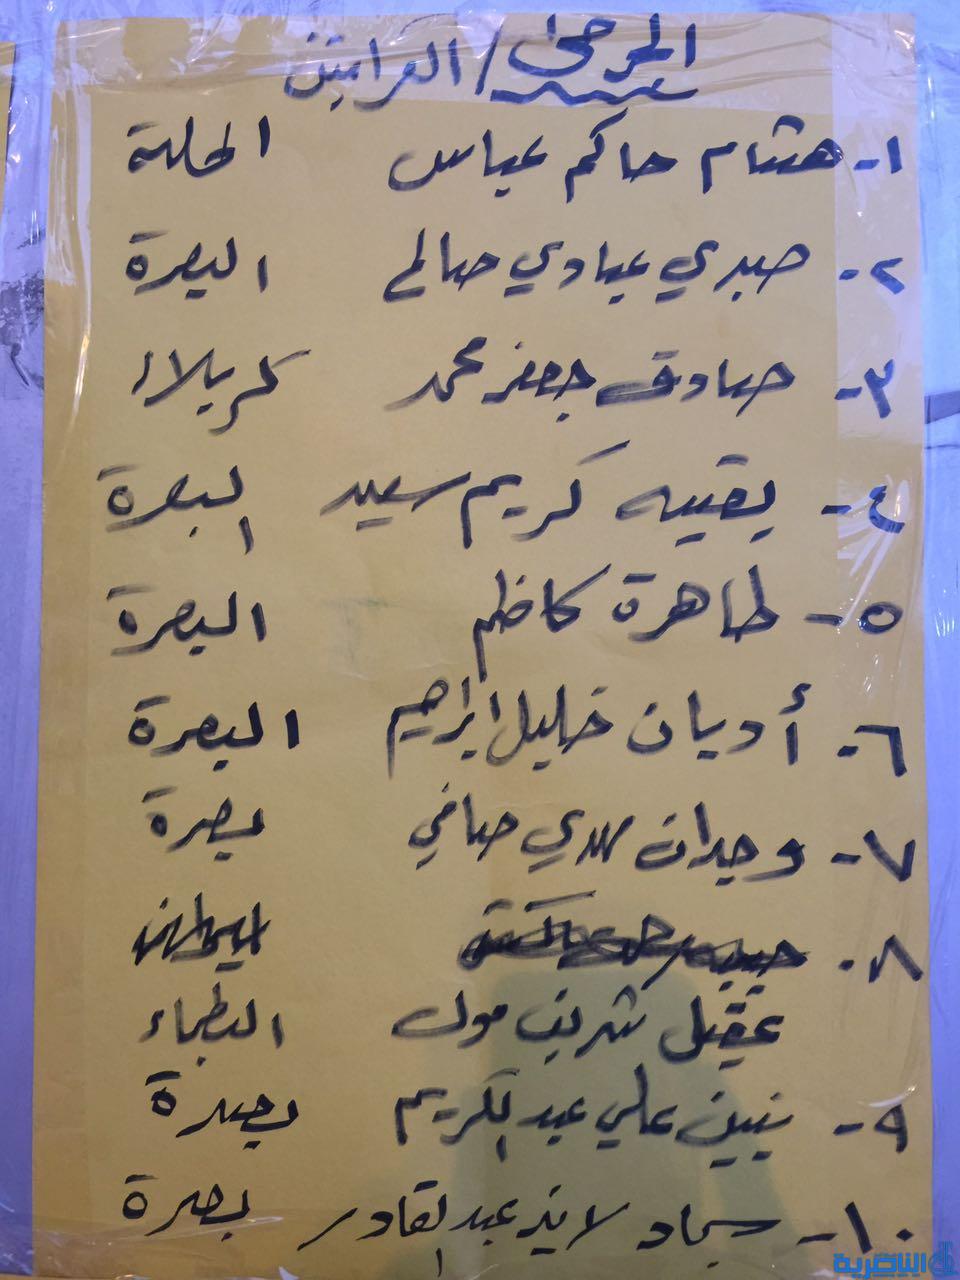 الجرحى / العراقيين
١- هشام حاكم عباس الحلة
٢- صبري عبادي صالح البصرة
٣- صادق جعفر محمد كربلاء
٤- كريم سعيد البصرة
٥- طاهرة كاظم البصرة
٦- أديان خليل ابراهيم البصرة
٧- وجدان مهدي صافي بصرة
٨-
عقيل شريف البطحاء
٩- بنين علي عبد الكريم بصرة
١٠- سجاد لايذ عبد القادر بصرة
الناصرية